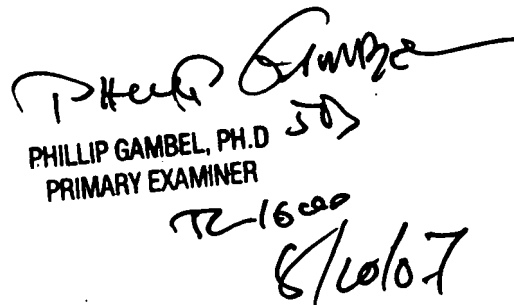 Phillip Gambel
PHILLIP GAMBEL, PH.D JD
PRIMARY EXAMINER
TC 1600
8/20/07